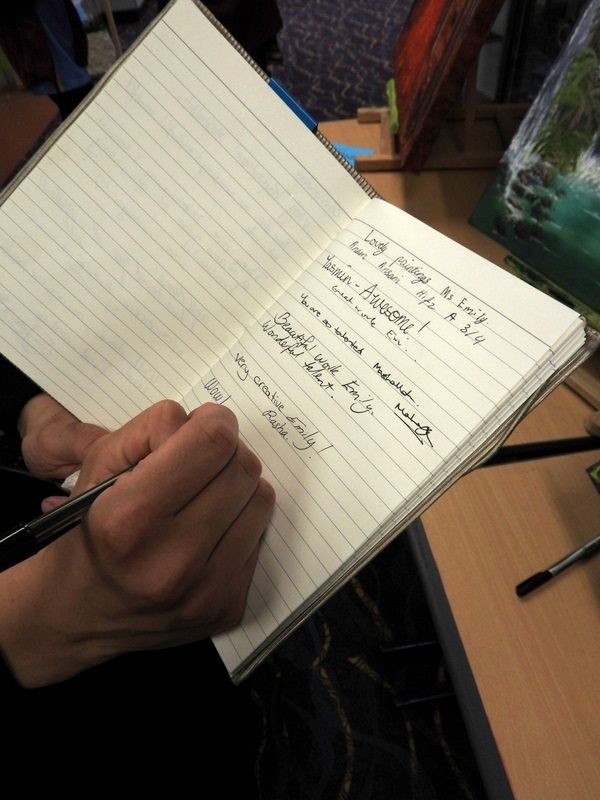 Lovely paintings Ms Emily
Ansari A 3/4
Yasmin - Awesome!
Great work Em...
You are so talented Mashallah.
Beautiful work Emily.
Wonderful talent.
very creative Emily!
Rasha
Wow!